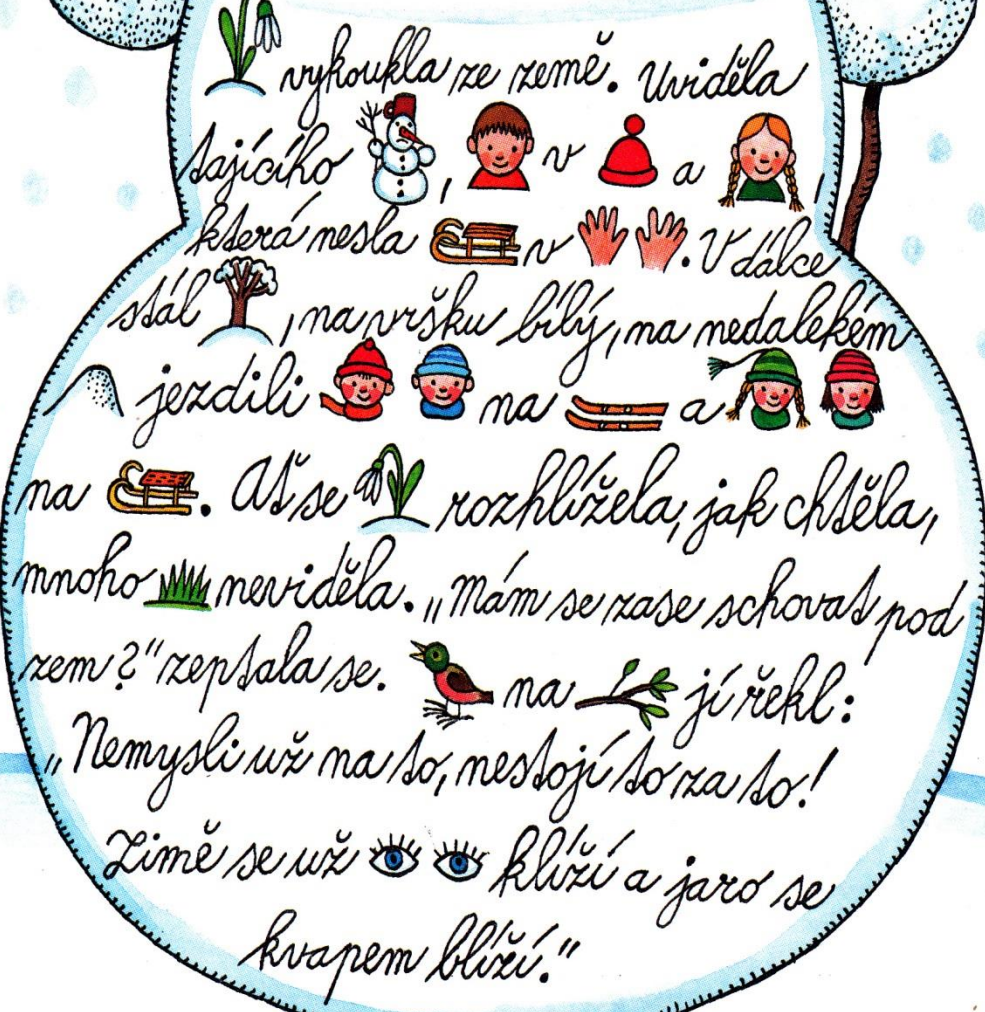 vykoukla ze země. Uviděla
tajícího , v a ,
která nesla v . V dálce
stál , na vršku bílý, na nedalekém
jezdili na a
na . Ať se rozhlížela, jak chtěla,
mnoho neviděla. „Mám se zase schovat pod
zem?" zeptala se. na jí řekl:
„Nemysli už na to, nestojí to za to!
Zimě se už klíží a jaro se
kvapem blíží."